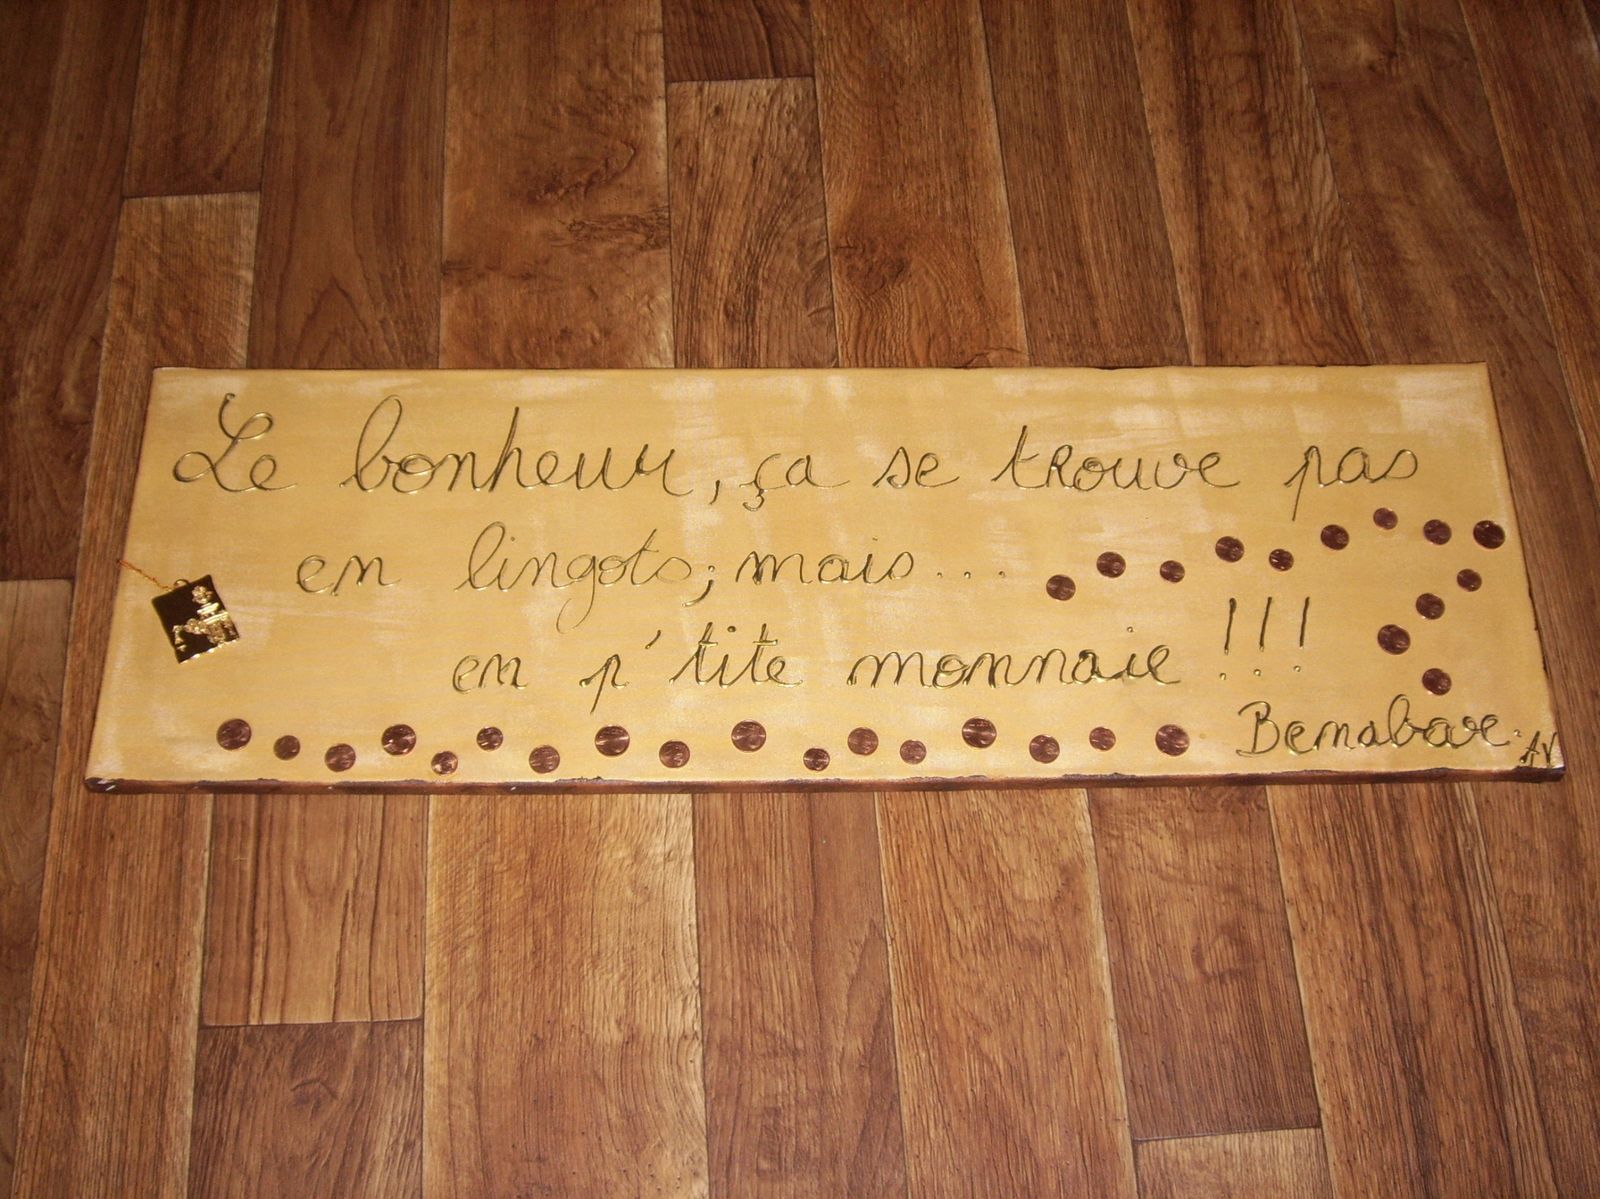 Le bonheur, ça se trouve pas
en lingots; mais...
en p'tite monnaie!!!
Benabar.
AV